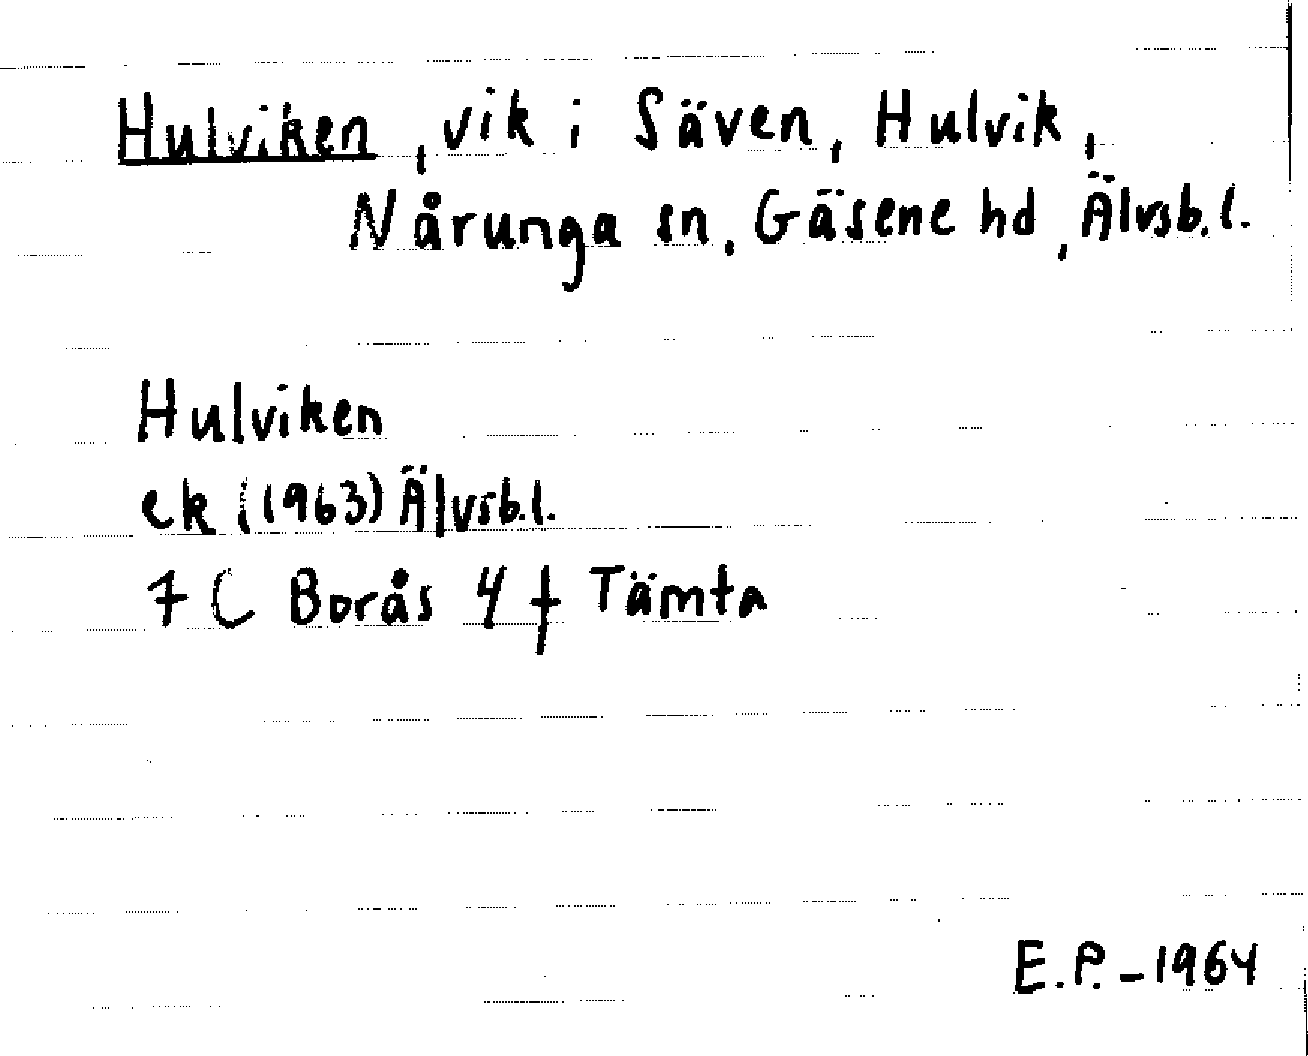 Hulviken, vik i Säven, Hulvik,
Nårunga sn, Gäsene hd, Älvsb.l.
Hulviken
ek (1963) Älvsb.l.
7 C Borås 4 f Tämta
E.P. - 1964